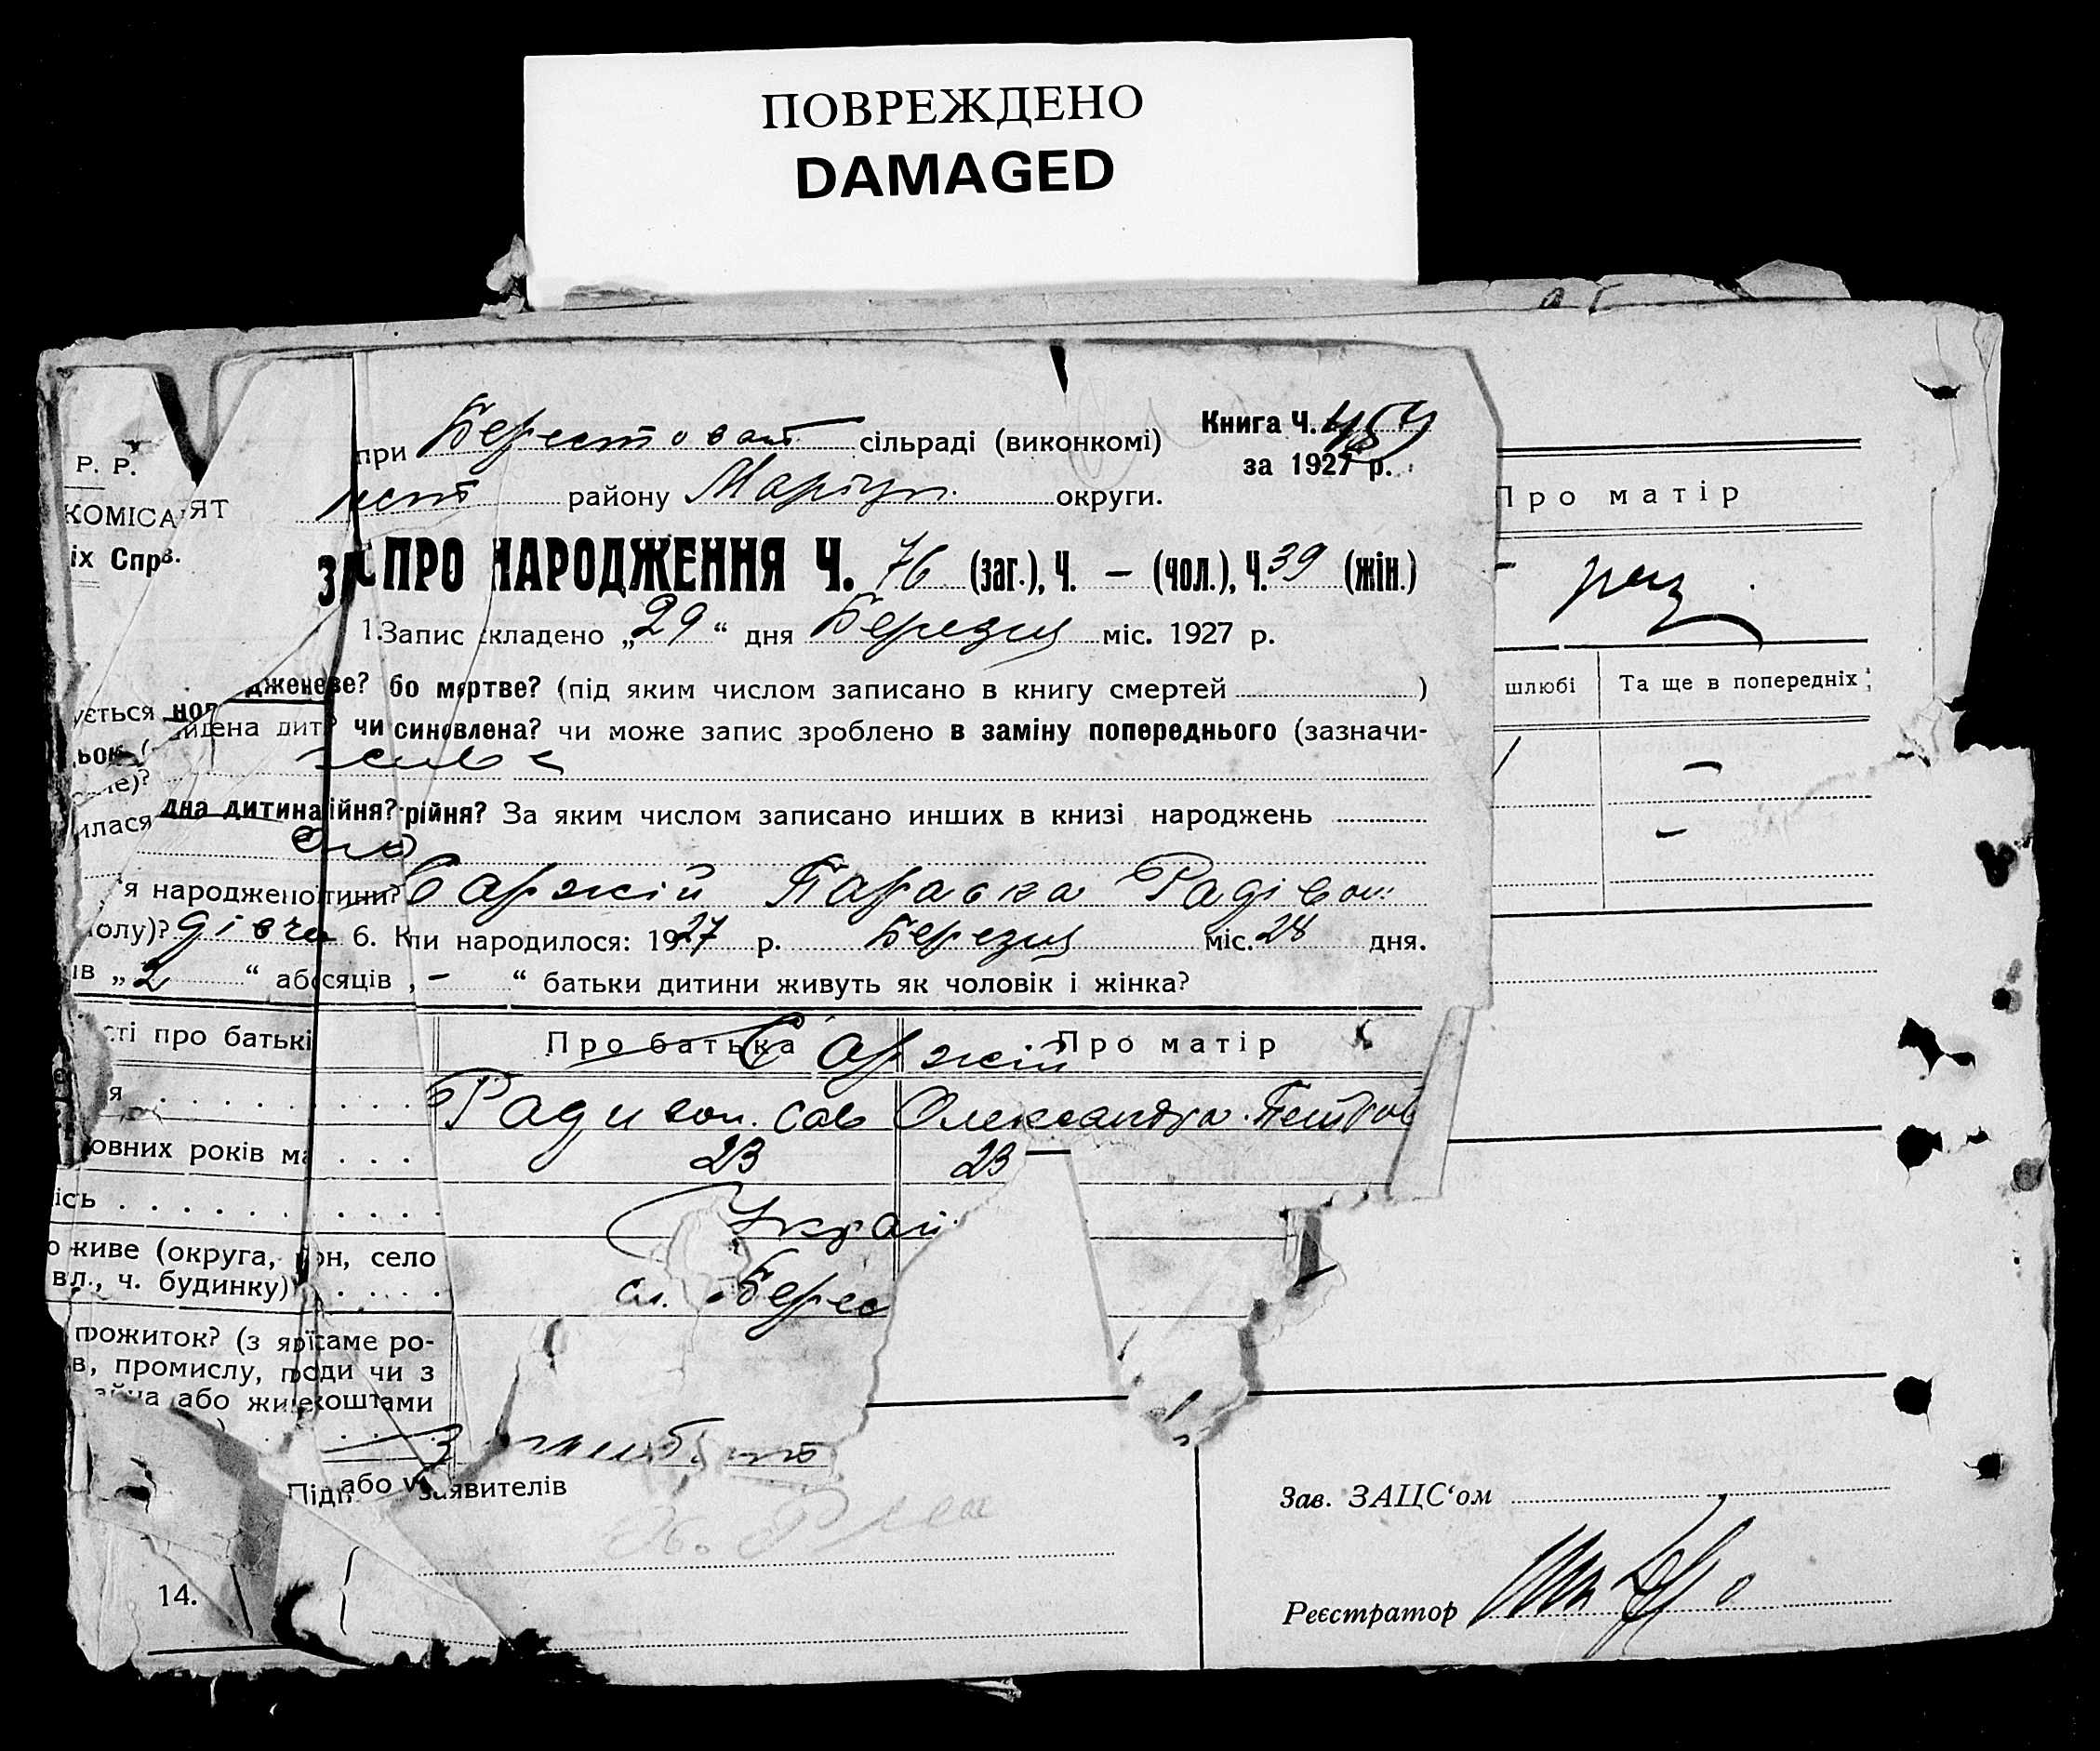 ПОВРЕЖДЕНО
DAMAGED
при Берестоват. сільраді (виконкомі)
Книга Ч.
за 1927 р.
району Маріуп. округи.
Р. Р.
КОМІСА ЯТ
іх Спр
ПРО НАРОДЖЕННЯ Ч. 76 (заг.), Ч. — (чол.), Ч. 39 (жін.)
1. Запис складено „29“ дня Березня міс. 1927 р.
бо мертве? (під яким числом записано в книгу смертей )
ується
дена дит? чи синовлена? чи може запис зроблено в заміну попереднього (зазначи-
живе
дна дитина ійня? рійня? За яким числом записано инших в книзі народжень
илася
одно
я народженої тини? Саржій Параска Радівон.
олу)? дівча 6. Кли народилося: 1927 р. Березня міс. 28 дня.
ів „2 “ або сяців , – “ батьки дитини живуть як чоловік і жінка?
сті про батькі Про батька Про матір
Саржій
я Радивон. Сав Олександра Петров
овних років ма 23 23
ісь Украй
о живе (округа, он, село
вл., ч. будинку) сл. Берес
прожиток? (з я саме ро-
в, промислу, поди чи з
або жи коштами
Підп або заявителів
14.
Про матір
раз
шлюбі Та ще в попередніх
–
–
Зав. ЗАЦС‘ом
Реєстратор